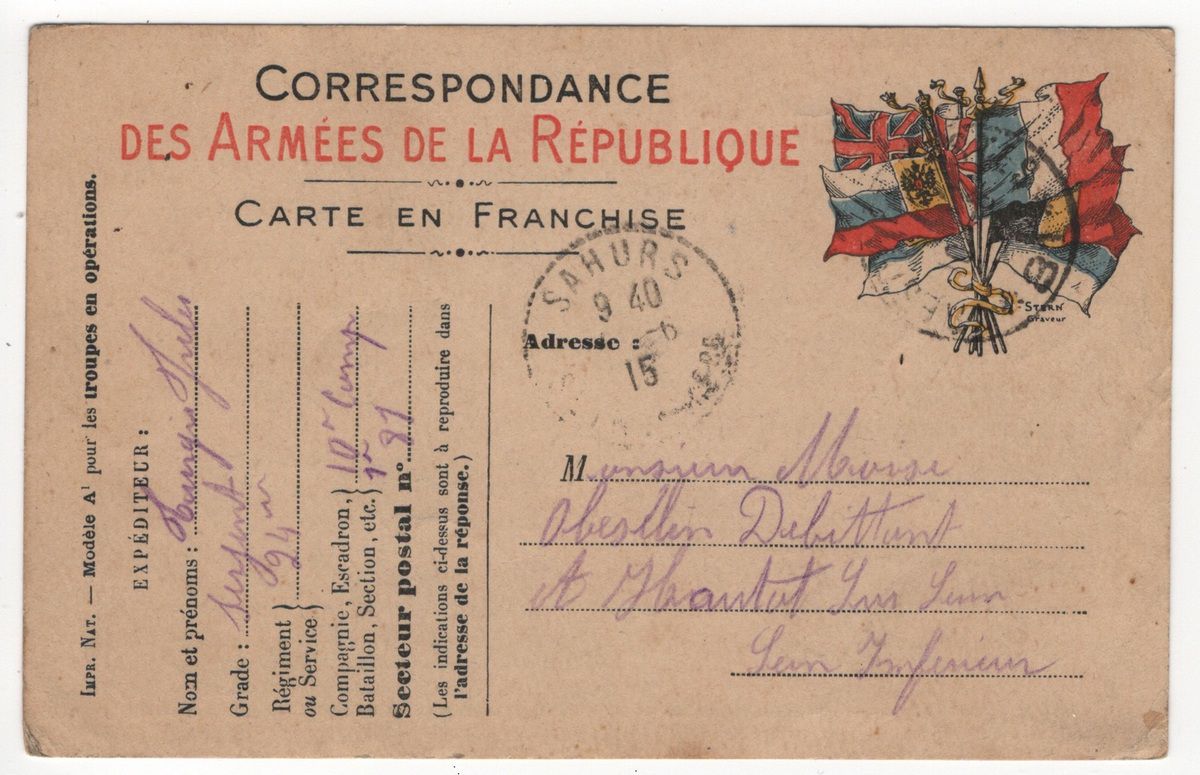 CORRESPONDANCE
DES ARMÉES DE LA RÉPUBLIQUE
CARTE EN FRANCHISE
STERN
Graveur
SAHURS
9 40
6
15
Adresse :
Monsieur Moise
Obesllin Debittant
A Hautot Sur Sein
Sein Inferieur
IMPR. NAT. — Modèle A¹ pour les troupes en opérations.
EXPÉDITEUR :
Nom et prénoms :
Grade : sergent
Régiment
ou Service} 94
Compagnie, Escadron,
Bataillon, Section, etc.} 10
Secteur postal n° 81
(Les indications ci-dessus sont à reproduire dans
l'adresse de la réponse.)